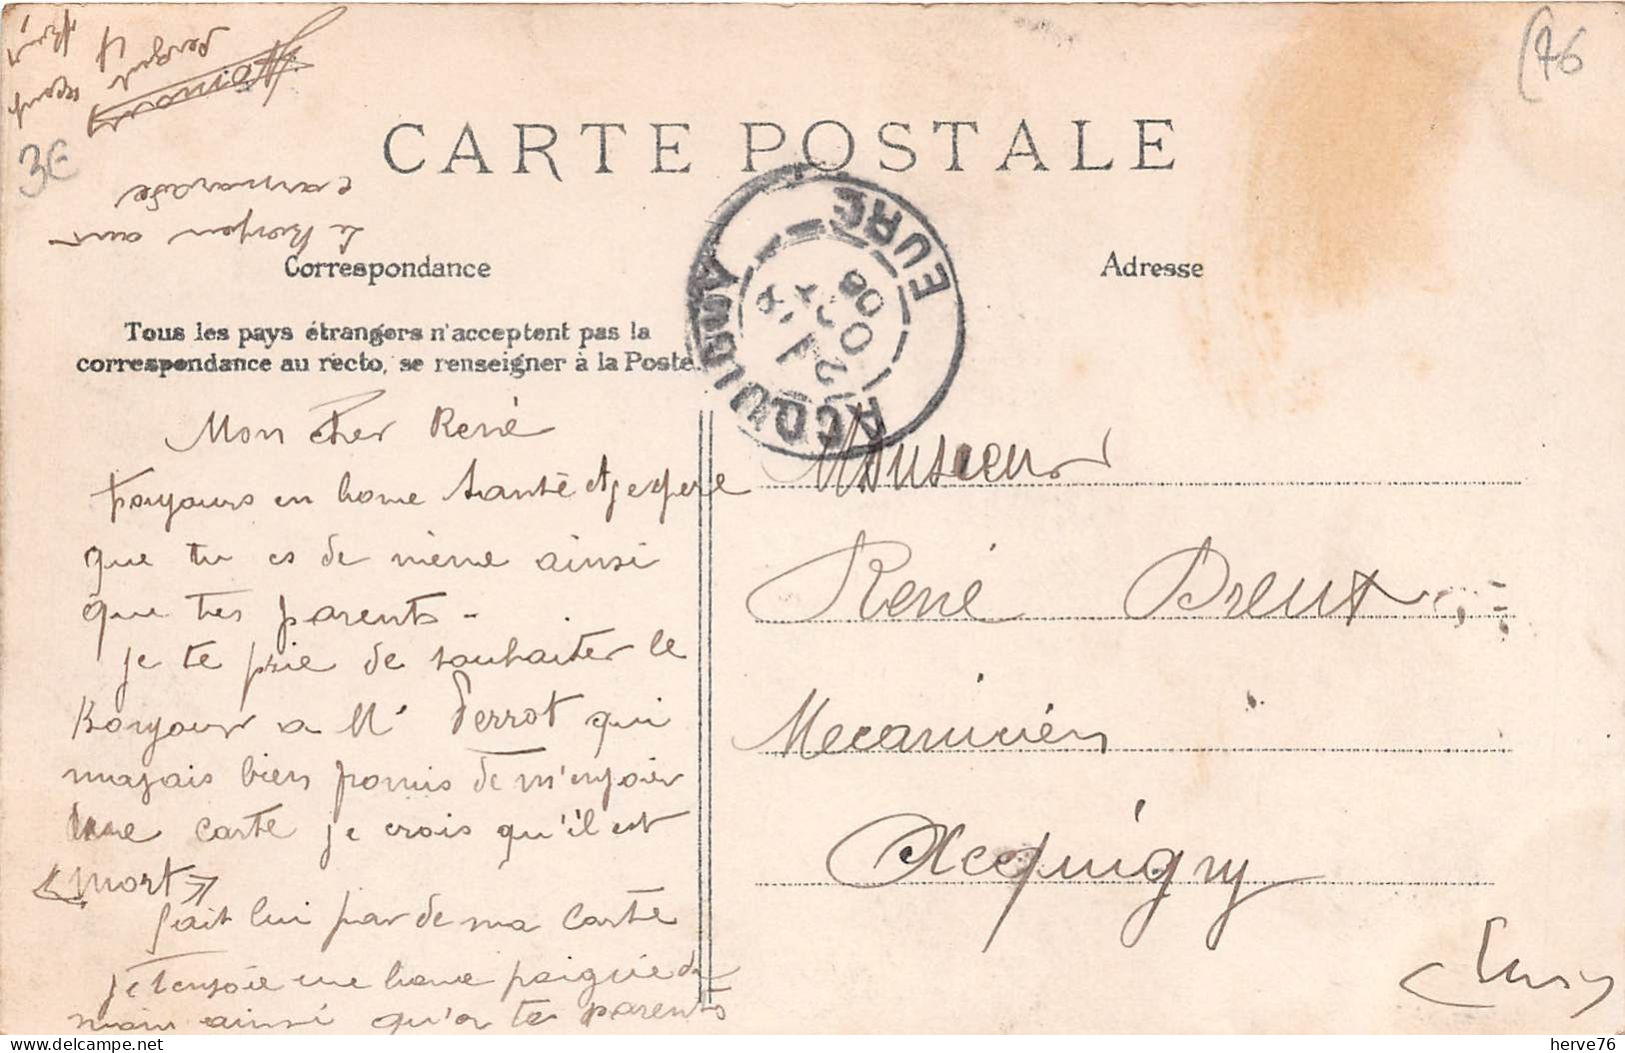 (76
3€
CARTE POSTALE
le Bonjour aux
camarade
Correspondance
Adresse
Tous les pays étrangers n'acceptent pas la
correspondance au recto, se renseigner à la Poste.
ACQUIGNY
EURE
21
08
Mon cher René
toujours en bonne santé et j'espere
que tu es de même ainsi
que tes parents -
je te prie de souhaiter le
Bonjour a Mr Perrot qui
mavais bien promis de m'envoier
une carte je crois qu'il est
mort
fait lui par de ma carte
je t'envoie une bonne poignée de
main ainsi qu'a tes parents
Monsieur
René Dreux
Mecanicien
Acquigny
Eure
herve76
delcampe.net